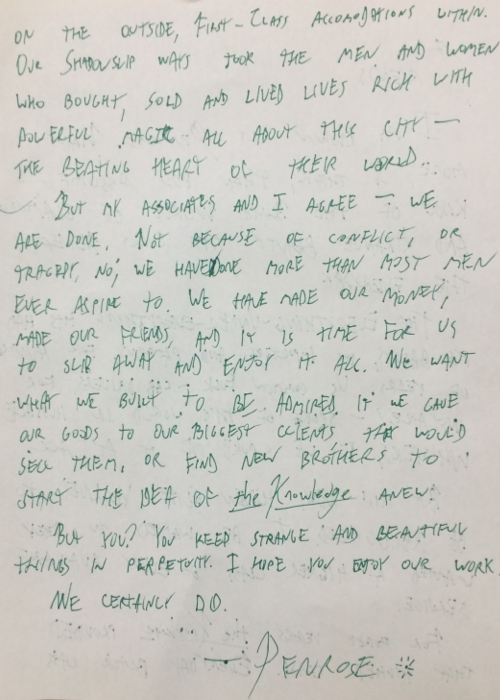 ON THE OUTSIDE, FIRST-CLASS ACCOMODATIONS WITHIN.
OUR SHADOWSLIP WAYS TOOK THE MEN AND WOMEN
WHO BOUGHT, SOLD AND LIVED LIVES RICH WITH
POWERFUL MAGIC ALL ABOUT THIS CITY —
THE BEATING HEART OF THEIR WORLD..
BUT MY ASSOCIATES AND I AGREE — WE
ARE DONE. NOT BECAUSE OF CONFLICT, OR
TRAGEDY, NO; WE HAVE DONE MORE THAN MOST MEN
EVER ASPIRE TO. WE HAVE MADE OUR MONEY,
MADE OUR FRIENDS, AND IT IS TIME FOR US
TO SLIP AWAY AND ENJOY IT ALL. WE WANT
WHAT WE BUILT TO BE ADMIRED. IF WE GAVE
OUR GOODS TO OUR BIGGEST CLIENTS THEY WOULD
SELL THEM, OR FIND NEW BROTHERS TO
START THE IDEA OF the Knowledge ANEW.
BUT YOU? YOU KEEP STRANGE AND BEAUTIFUL
THINGS IN PERPETUITY. I HOPE YOU ENJOY OUR WORK.
WE CERTAINLY DO.
PENROSE